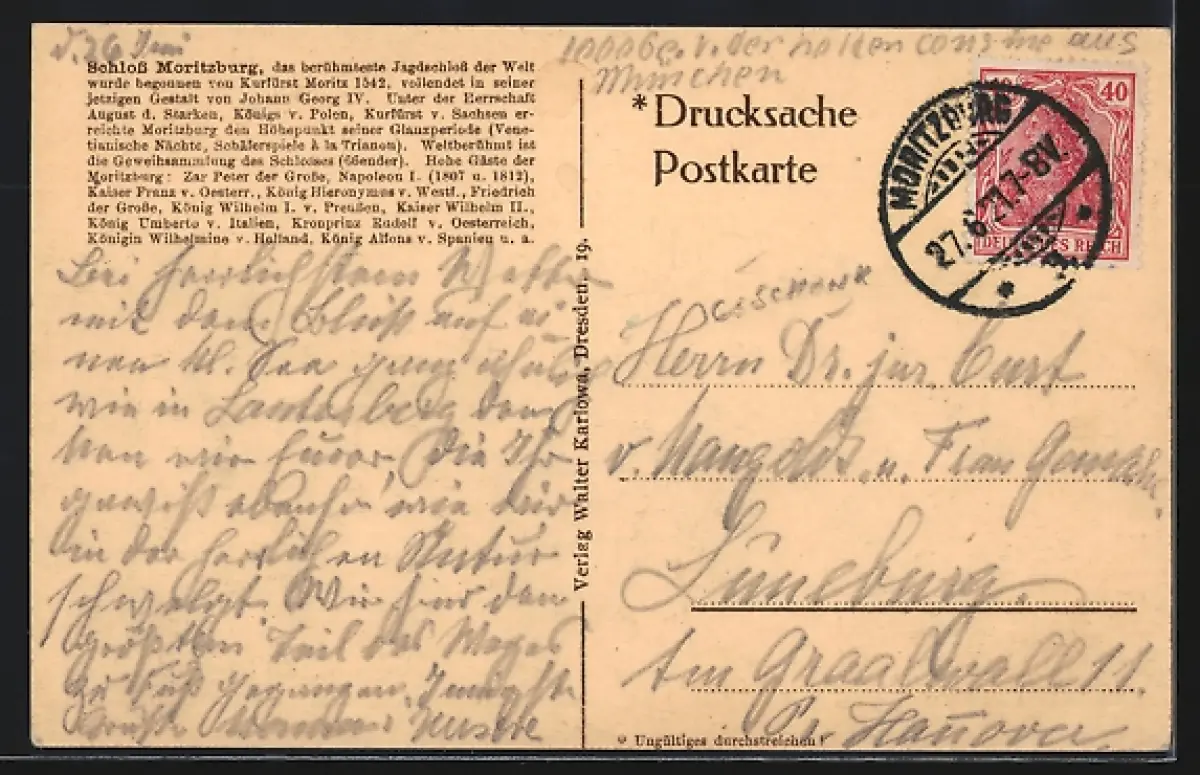 d. 26 Juni
Schloß Moritzburg, das berühmteste Jagdschloß der Welt
wurde begonnen von Kurfürst Moritz 1542, vollendet in seiner
jetzigen Gestalt von Johann Georg IV. Unter der Herrschaft
August d. Starken, Königs v. Polen, Kurfürst v. Sachsen er-
reichte Moritzburg den Höhepunkt seiner Glanzperiode (Vene-
tianische Nächte, Schäferspiele à la Trianon). Weltberühmt ist
die Geweihsammlung des Schlosses (66ender). Hohe Gäste der
Moritzburg: Zar Peter der Große, Napoleon I. (1807 u. 1812),
Kaiser Franz v. Oesterr., König Hieronymus v. Westf., Friedrich
der Große, König Wilhelm I. v. Preußen, Kaiser Wilhelm II.,
König Umberto v. Italien, Kronprinz Rudolf v. Oesterreich,
Königin Wilhelmine v. Holland, König Alfons v. Spanien u. a.
Bei herrlichstem Wetter
mit dem Blick auf ei
nen kl. See ganz
wie in Lauterberg den
ken wir Eurer, die Ihr
gewiß ebenso wie wir
in der herrlichen Natur
schwelgt. Wir sind den
größten Teil des Weges
zu Fuß gegangen.
Grüße
Verlag Walter Karlowa, Dresden. 19.
v. der holden aus
München
* Drucksache
Postkarte
40
DEUTSCHES REICH
MORITZBURG
27.6.21.7-8V.
GESCHENK
Herrn Dr. jur. Curt
v. Mangoldt u. Frau Gemahlin
Lüneburg.
Am Graalwall 11.
Pr. Hannover
* Ungültiges durchstreichen!